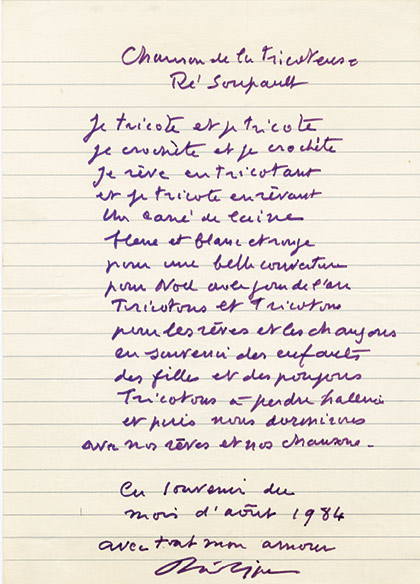 Chanson de la tricoteuse
Ré Soupault
Je tricote et je tricote
je crochète et je crochète
Je rêve en tricotant
et je tricote en rêvant
Un carré de laine
bleue et blanc et rouge
pour une belle couverture
pour Noël avec jour de l'an
Tricotons et Tricotons
pour les rêves et les chansons
en souvenir des enfants
des filles et des
Tricotons à perdre haleine
et puis nous dormirons
avec nos rêves et nos chansons.
En souvenir du
mois d'août 1984
avec tout mon amour
Philippe